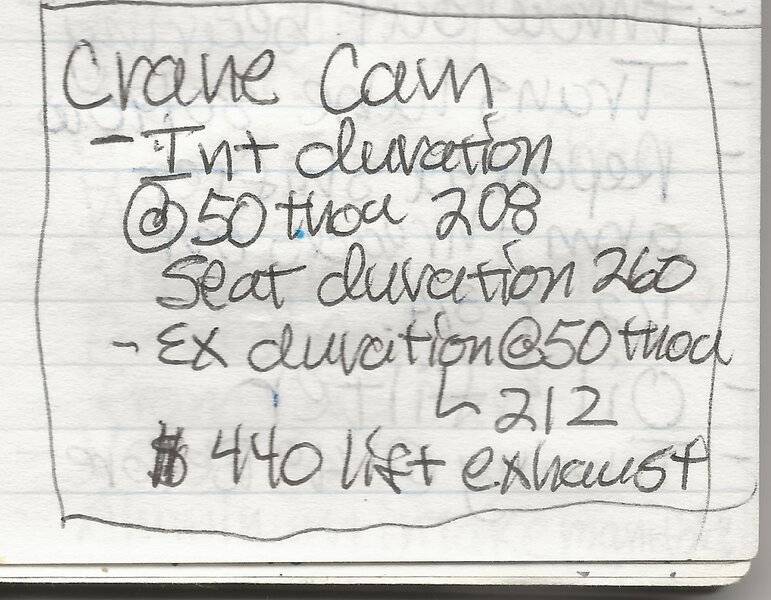 Crane Cam
- Int duration
@ 50 thou 208
Seat duration 260
- Ex duration @ 50 thou
↳ 212
440 lift exhaust